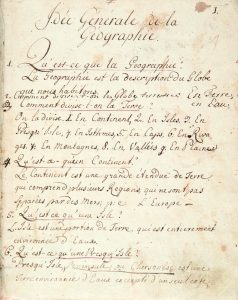 1.
Idée Generale de la
Géographie.
1. Qu'est-ce que la Géographie?
La Géographie est la description du Globe
que nous habitons.
2. Comment divise-t-on le Globe terrestre? En Terre,
en Eau,
3. Comment divise-t-on la Terre?
On la divise. 1. En Continent, 2. En Isles, 3. En
Presqu'isle, 4. En Isthmes, 5. En Caps, 6. En Riva
ges, 7. En Montagnes, 8. En Vallées, 9. En Plaines
4. Qu'est-ce qu'un Continent?
Le Continent est une grande étendue de Terre,
qui comprend plusieurs Regions qui ne sont pas
separées par des Mers, p. e. l'Europe
5. Qu'est ce qu'une Isle?
L'Isle est une portion de Terre, qui est entierement
environnée d'Eau.
6. Qu'est-ce qu'une Presqu'Isle?
Presqu'Isle, ou Chersonese est une
Terre environnée d'Eau excepté d'un seul coté,